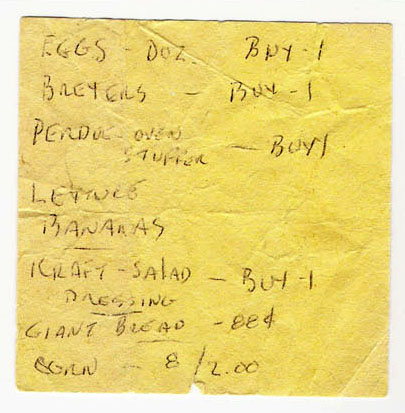 EGGS - DOZ. BUY-1
BREYERS - BUY-1
PERDUE OVEN
STUFFER - BUY 1
LETTUCE
BANANAS
KRAFT-SALAD - BUY-1
DRESSING
GIANT BREAD - 88¢
CORN - 8/2.00